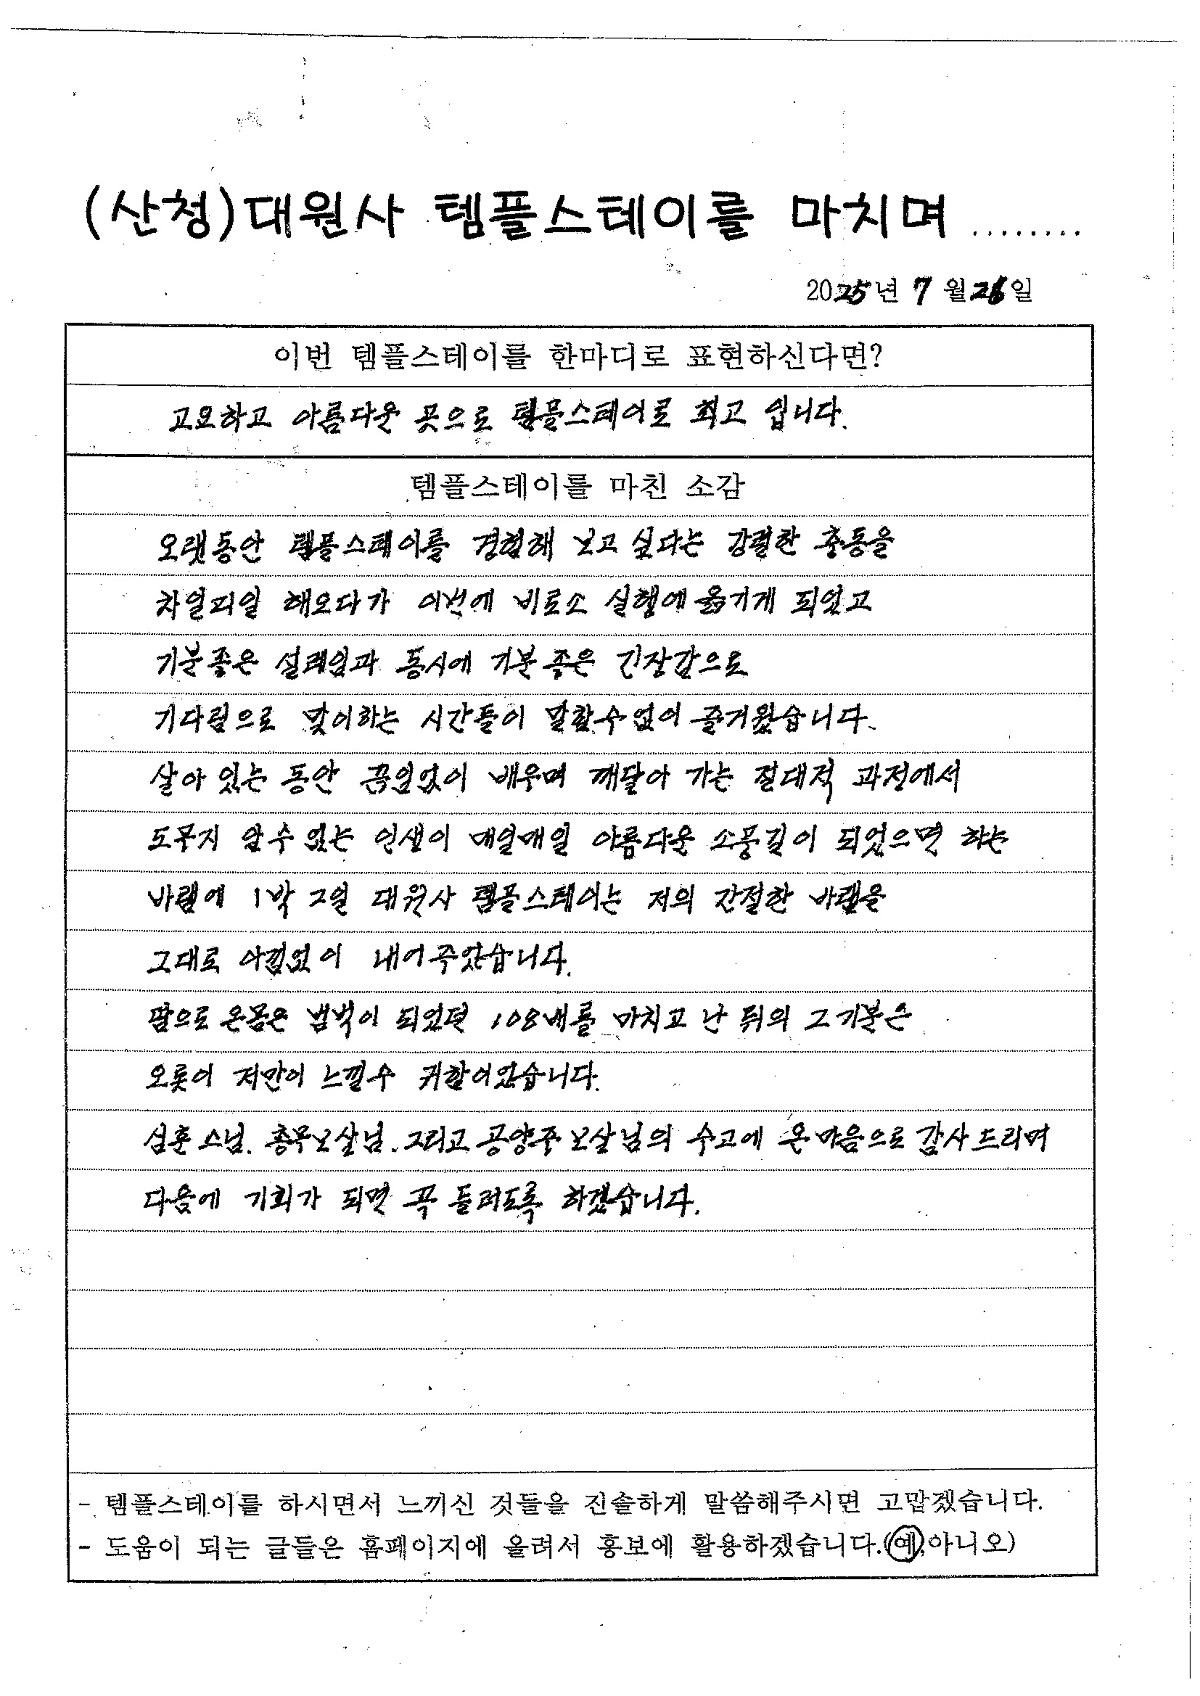 (산청)대원사 템플스테이를 마치며 ........
2025년 7월 26일
이번 템플스테이를 한마디로 표현하신다면?
고요하고 아름다운 곳으로 템플스테이로 최고 입니다.
템플스테이를 마친 소감
오랫동안 템플스테이를 경험해 보고 싶다는 강렬한 충동을
차일피일 해오다가 이번에 비로소 실행에 옮기게 되었고
기분좋은 설레임과 동시에 기분 좋은 긴장감으로
기다림으로 맞이하는 시간들이 말할수 없이 즐거웠습니다.
살아 있는 동안 끊임없이 배우며 깨달아 가는 절대적 과정에서
도무지 알수 없는 인생이 매일매일 아름다운 소풍길이 되었으면 하는
바램에 1박 2일 대원사 템플스테이는 저의 간절한 바램을
그대로 아낌없이 내어주었습니다.
땀으로 온몸은 범벅이 되었던 108배를 마치고 난 뒤의 그 기분은
오롯이 저만이 느낄수 귀할이었습니다.
심훈 스님. 총무보살님. 그리고 공양주 보살님의 수고에 온 마음으로 감사드리며
다음에 기회가 되면 꼭 들러도록 하겠습니다.
- 템플스테이를 하시면서 느끼신 것들을 진솔하게 말씀해주시면 고맙겠습니다.
- 도움이 되는 글들은 홈페이지에 올려서 홍보에 활용하겠습니다.(예,아니오)